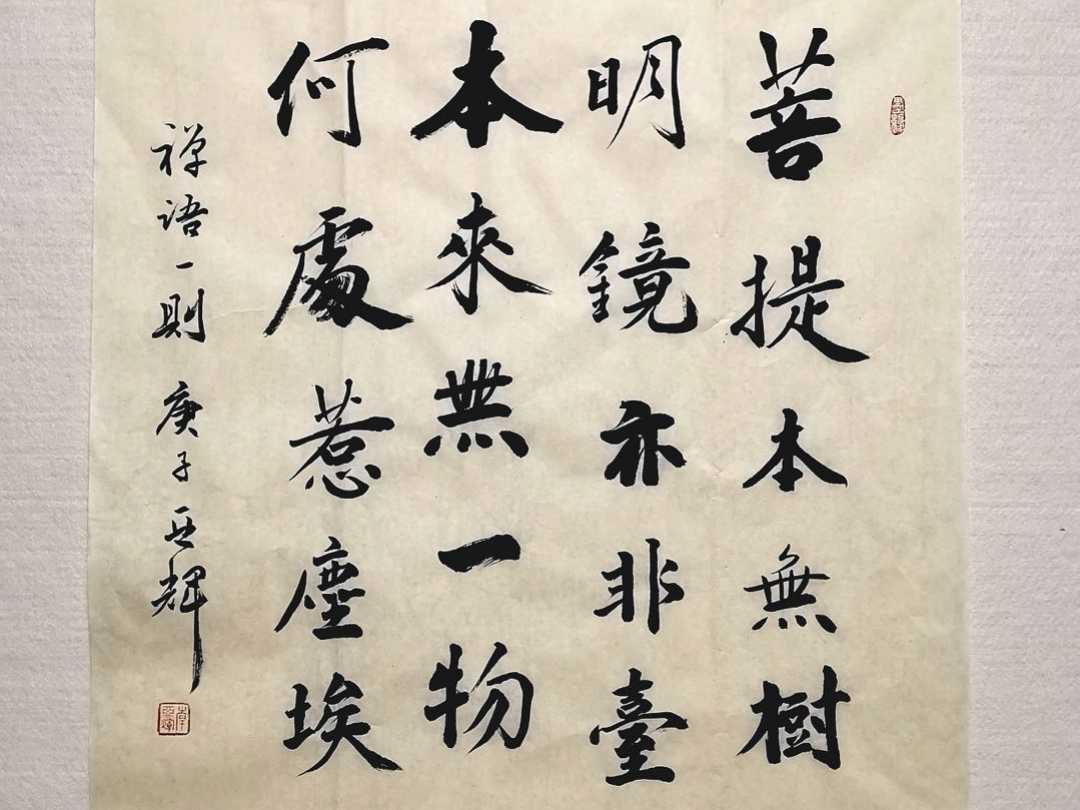 菩提本無樹
明鏡亦非臺
本來無一物
何處惹塵埃
禅语一則 庚子亚輝